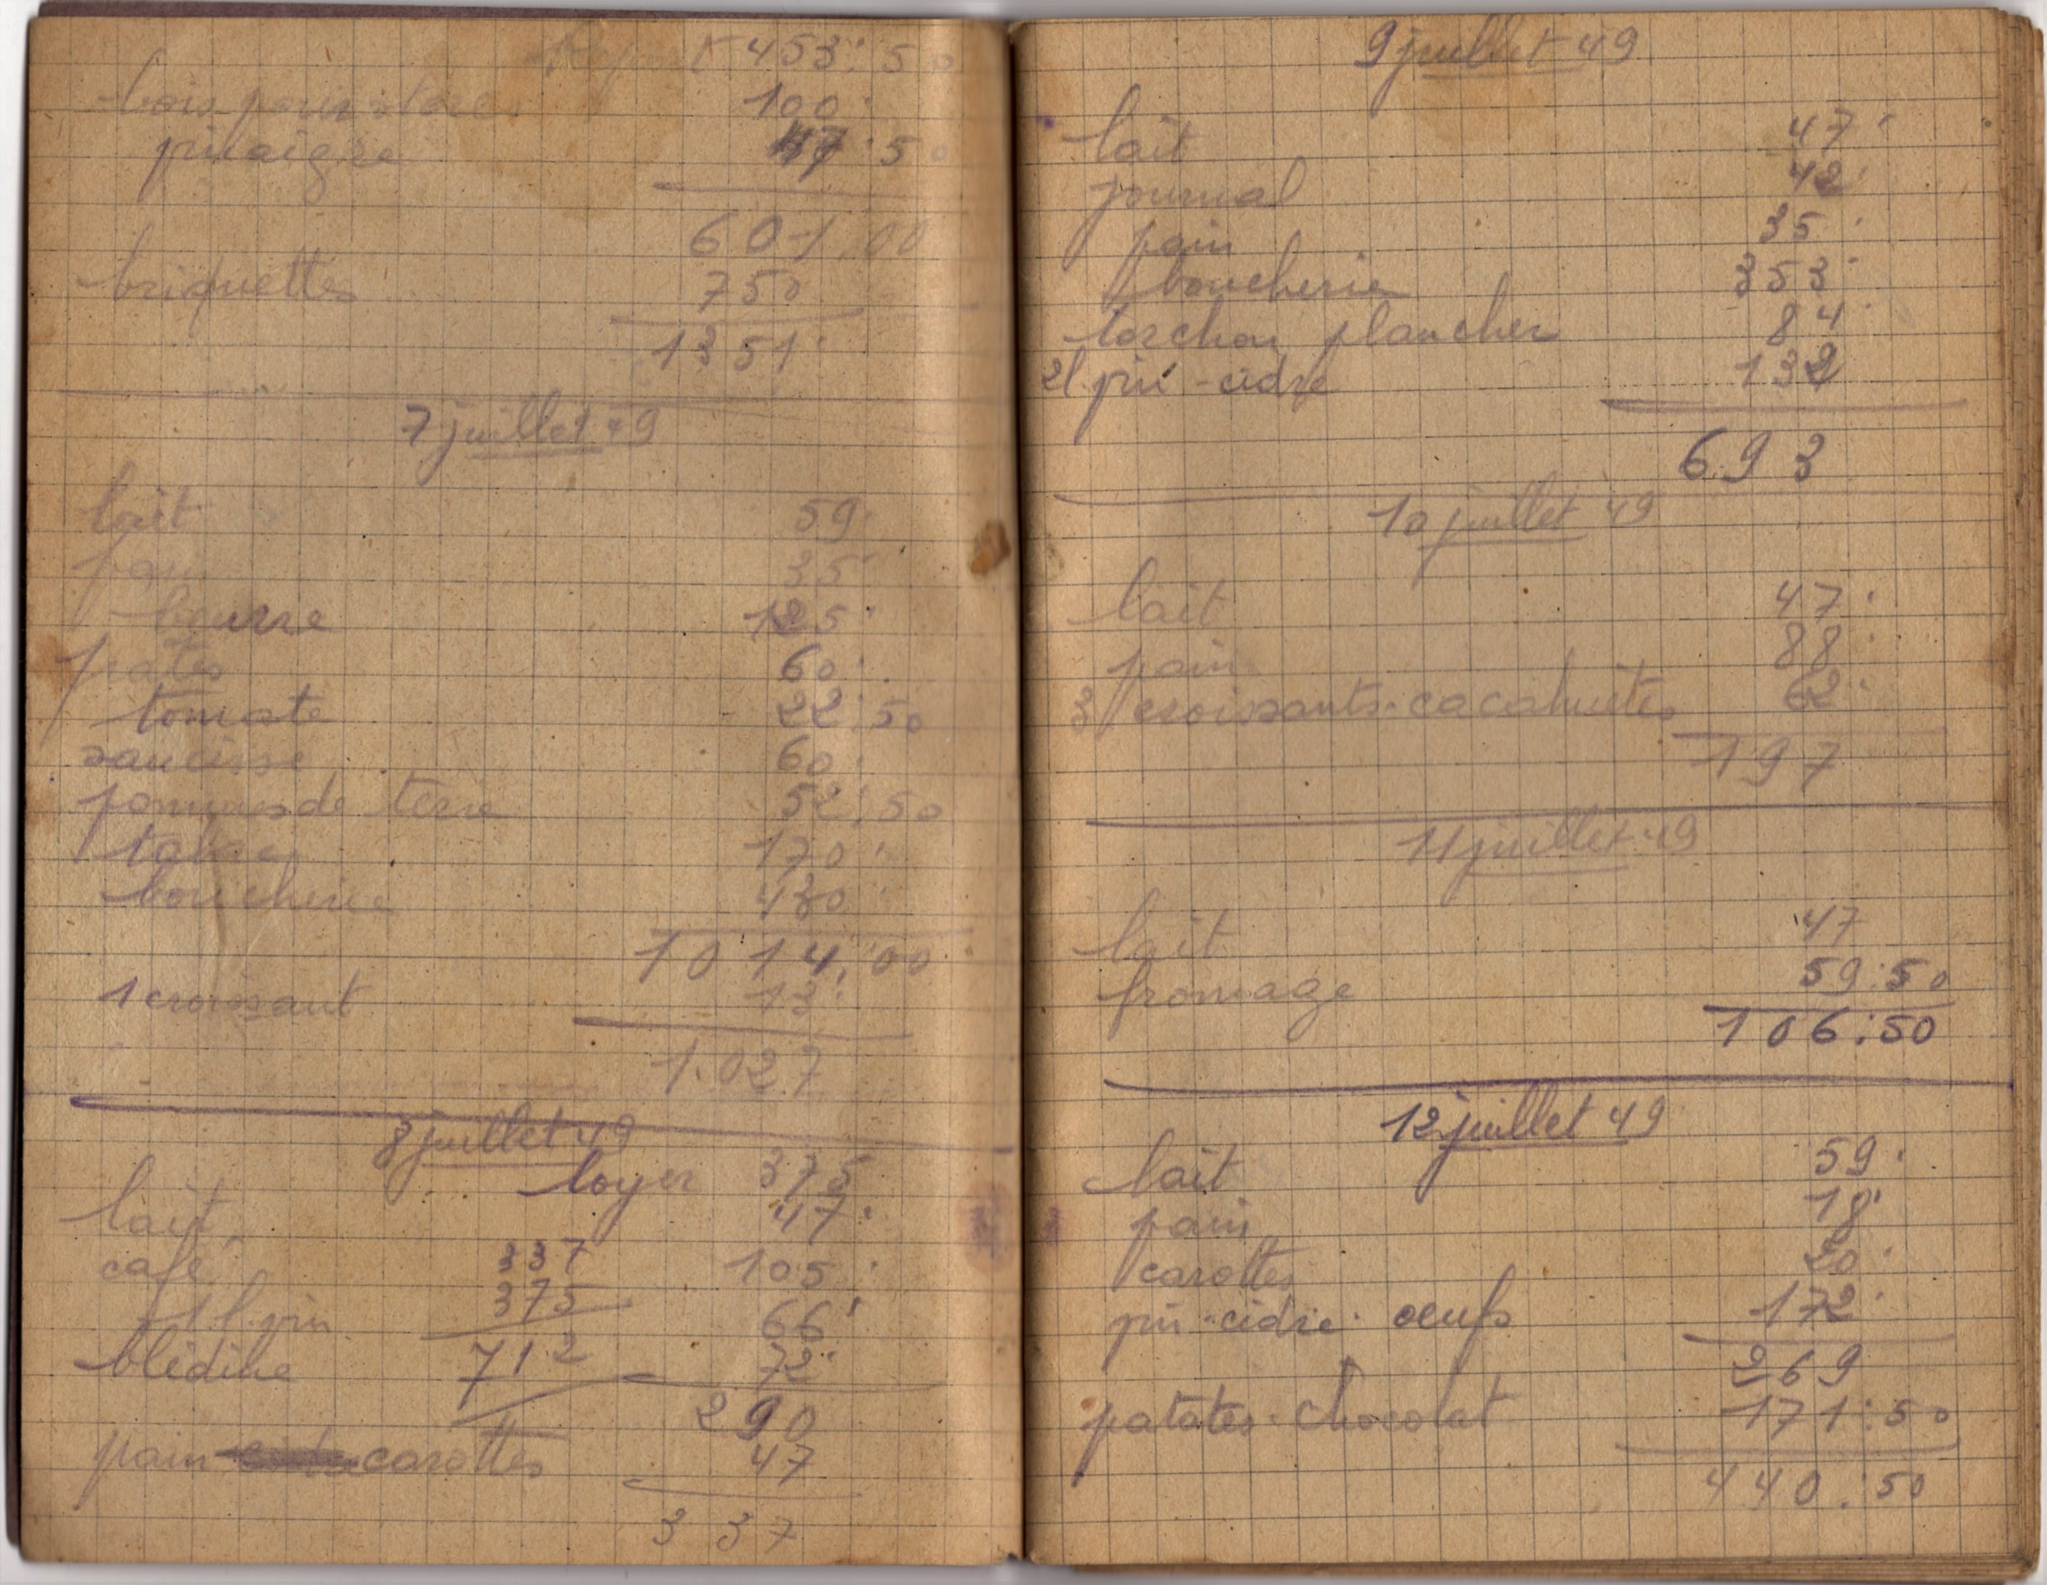 Report 453:50
bois pour store 100:
vinaigre 47:50
601,00
briquettes 750
1351:
7 juillet 49
lait 59:
pain 35:
beurre 125:
pates 60:
tomate 22:50
saucisse 60:
pommes de terre 52:50
tabac 170:
boucherie 430:
1014,00
1 croissant 13:
1.027
8 juillet 49
loyer 375
lait 47:
café 337 105:
1 l. vin 375 66:
blédine 712 72:
290
pain carottes 47
337
9 juillet 49
lait 47:
journal 42:
pain 35:
boucherie 353:
torchon plancher 84:
2l vin - cidre 132
693
10 juillet 49
lait 47:
pain 88:
3 croissants. cacahuètes 62:
197
11 juillet 49
lait 47
fromage 59:50
106:50
12 juillet 49
lait 59:
pain 18:
carottes 20:
vin. cidre. oeufs 172:
269
patates. chocolat 171:50
440:50